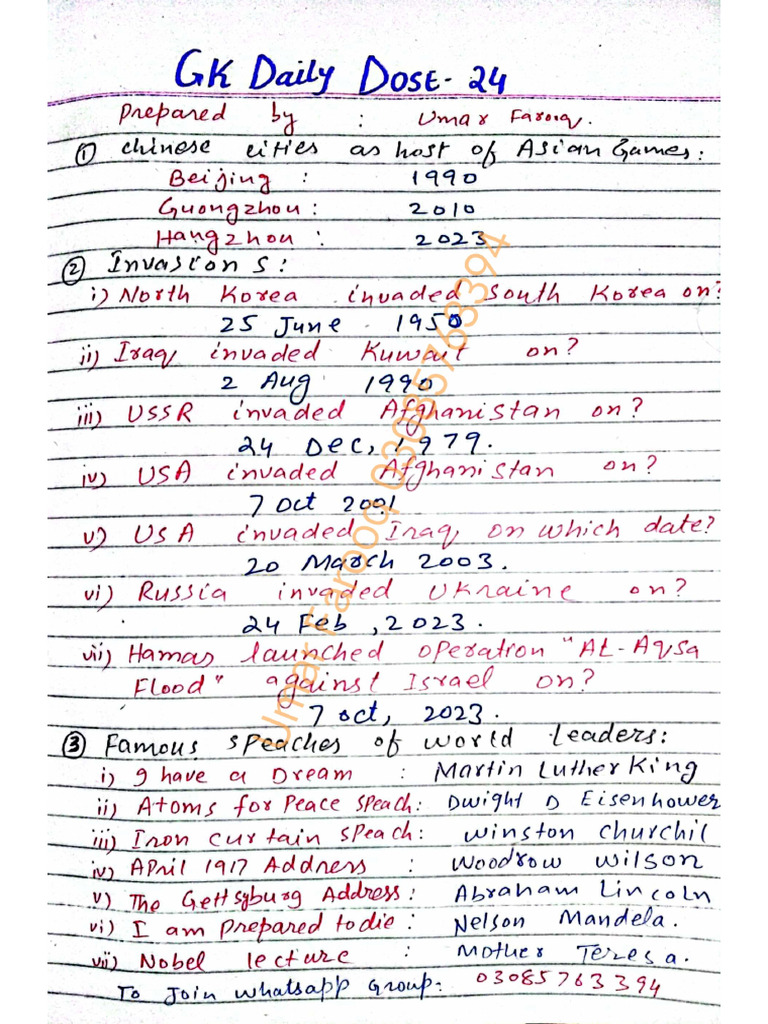 GK Daily Dose - 24
Prepared by : Umar Farooq.
① Chinese cities as host of Asian Games:
Beijing : 1990
Guongzhou : 2010
Hangzhou : 2023
② Invasions:
i) North Korea invaded South Korea on?
25 June 1950
ii) Iraq invaded Kuwait on?
2 Aug 1990
iii) USSR invaded Afghanistan on?
24 Dec, 1979.
iv) USA invaded Afghanistan on?
7 Oct 2001
v) USA invaded Iraq on which date?
20 March 2003.
vi) Russia invaded Ukraine on?
24 Feb, 2023.
vii) Hamas launched operation "Al-Aqsa
Flood" against Israel on?
7 Oct, 2023.
③ Famous Speaches of world leaders:
i) I have a Dream : Martin Luther King
ii) Atoms for Peace Speach: Dwight D Eisenhower
iii) Iron curtain Speach: Winston Churchil
iv) April 1917 Address : Woodrow Wilson
v) The Gettsyburg Address: Abraham Lincoln
vi) I am prepared to die: Nelson Mandela.
vii) Nobel lecture : Mother Teresa.
To Join whatsapp Group: 03085763394
Umar Farooq 03085763394